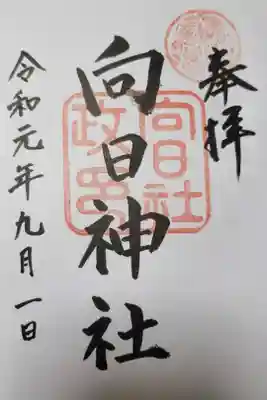 奉拝
向日神社
令和元年九月一日
向日社
政所